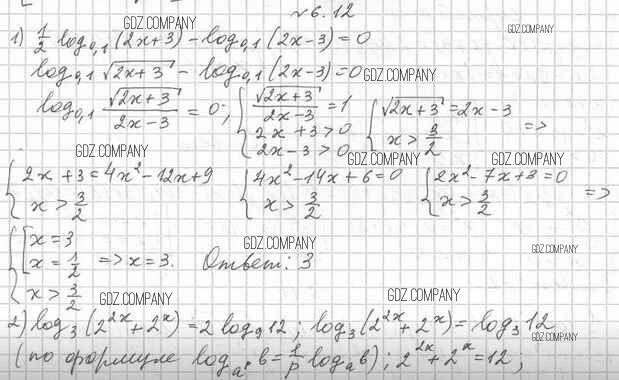 №6.12
GDZ.COMPANY GDZ.COMPANY
1) 1/2 log₀,₁(2x+3) - log₀,₁(2x-3) = 0
log₀,₁ √(2x+3) - log₀,₁(2x-3) = 0 GDZ.COMPANY
log₀,₁ √(2x+3)/(2x-3) = 0; { √(2x+3)/(2x-3) = 1 { √(2x+3) = 2x-3
2x+3>0 x > 3/2 =>
2x-3>0
GDZ.COMPANY GDZ.COMPANY GDZ.COMPANY
{ 2x+3 = 4x²-12x+9 { 4x²-14x+6=0 { 2x²-7x+3=0
x > 3/2 x > 3/2 x > 3/2 =>
{ [ x = 3 GDZ.COMPANY GDZ.COMPANY
x = 1/2 => x=3. Ответ: 3
x > 3/2
GDZ.COMPANY GDZ.COMPANY
2) log₃(2²ˣ+2ˣ) = 2 log₉12; log₃(2²ˣ+2ˣ) = log₃12
GDZ.COMPANY
(по формуле logₐᵖ b = 1/p logₐb); 2²ˣ+2ˣ=12;